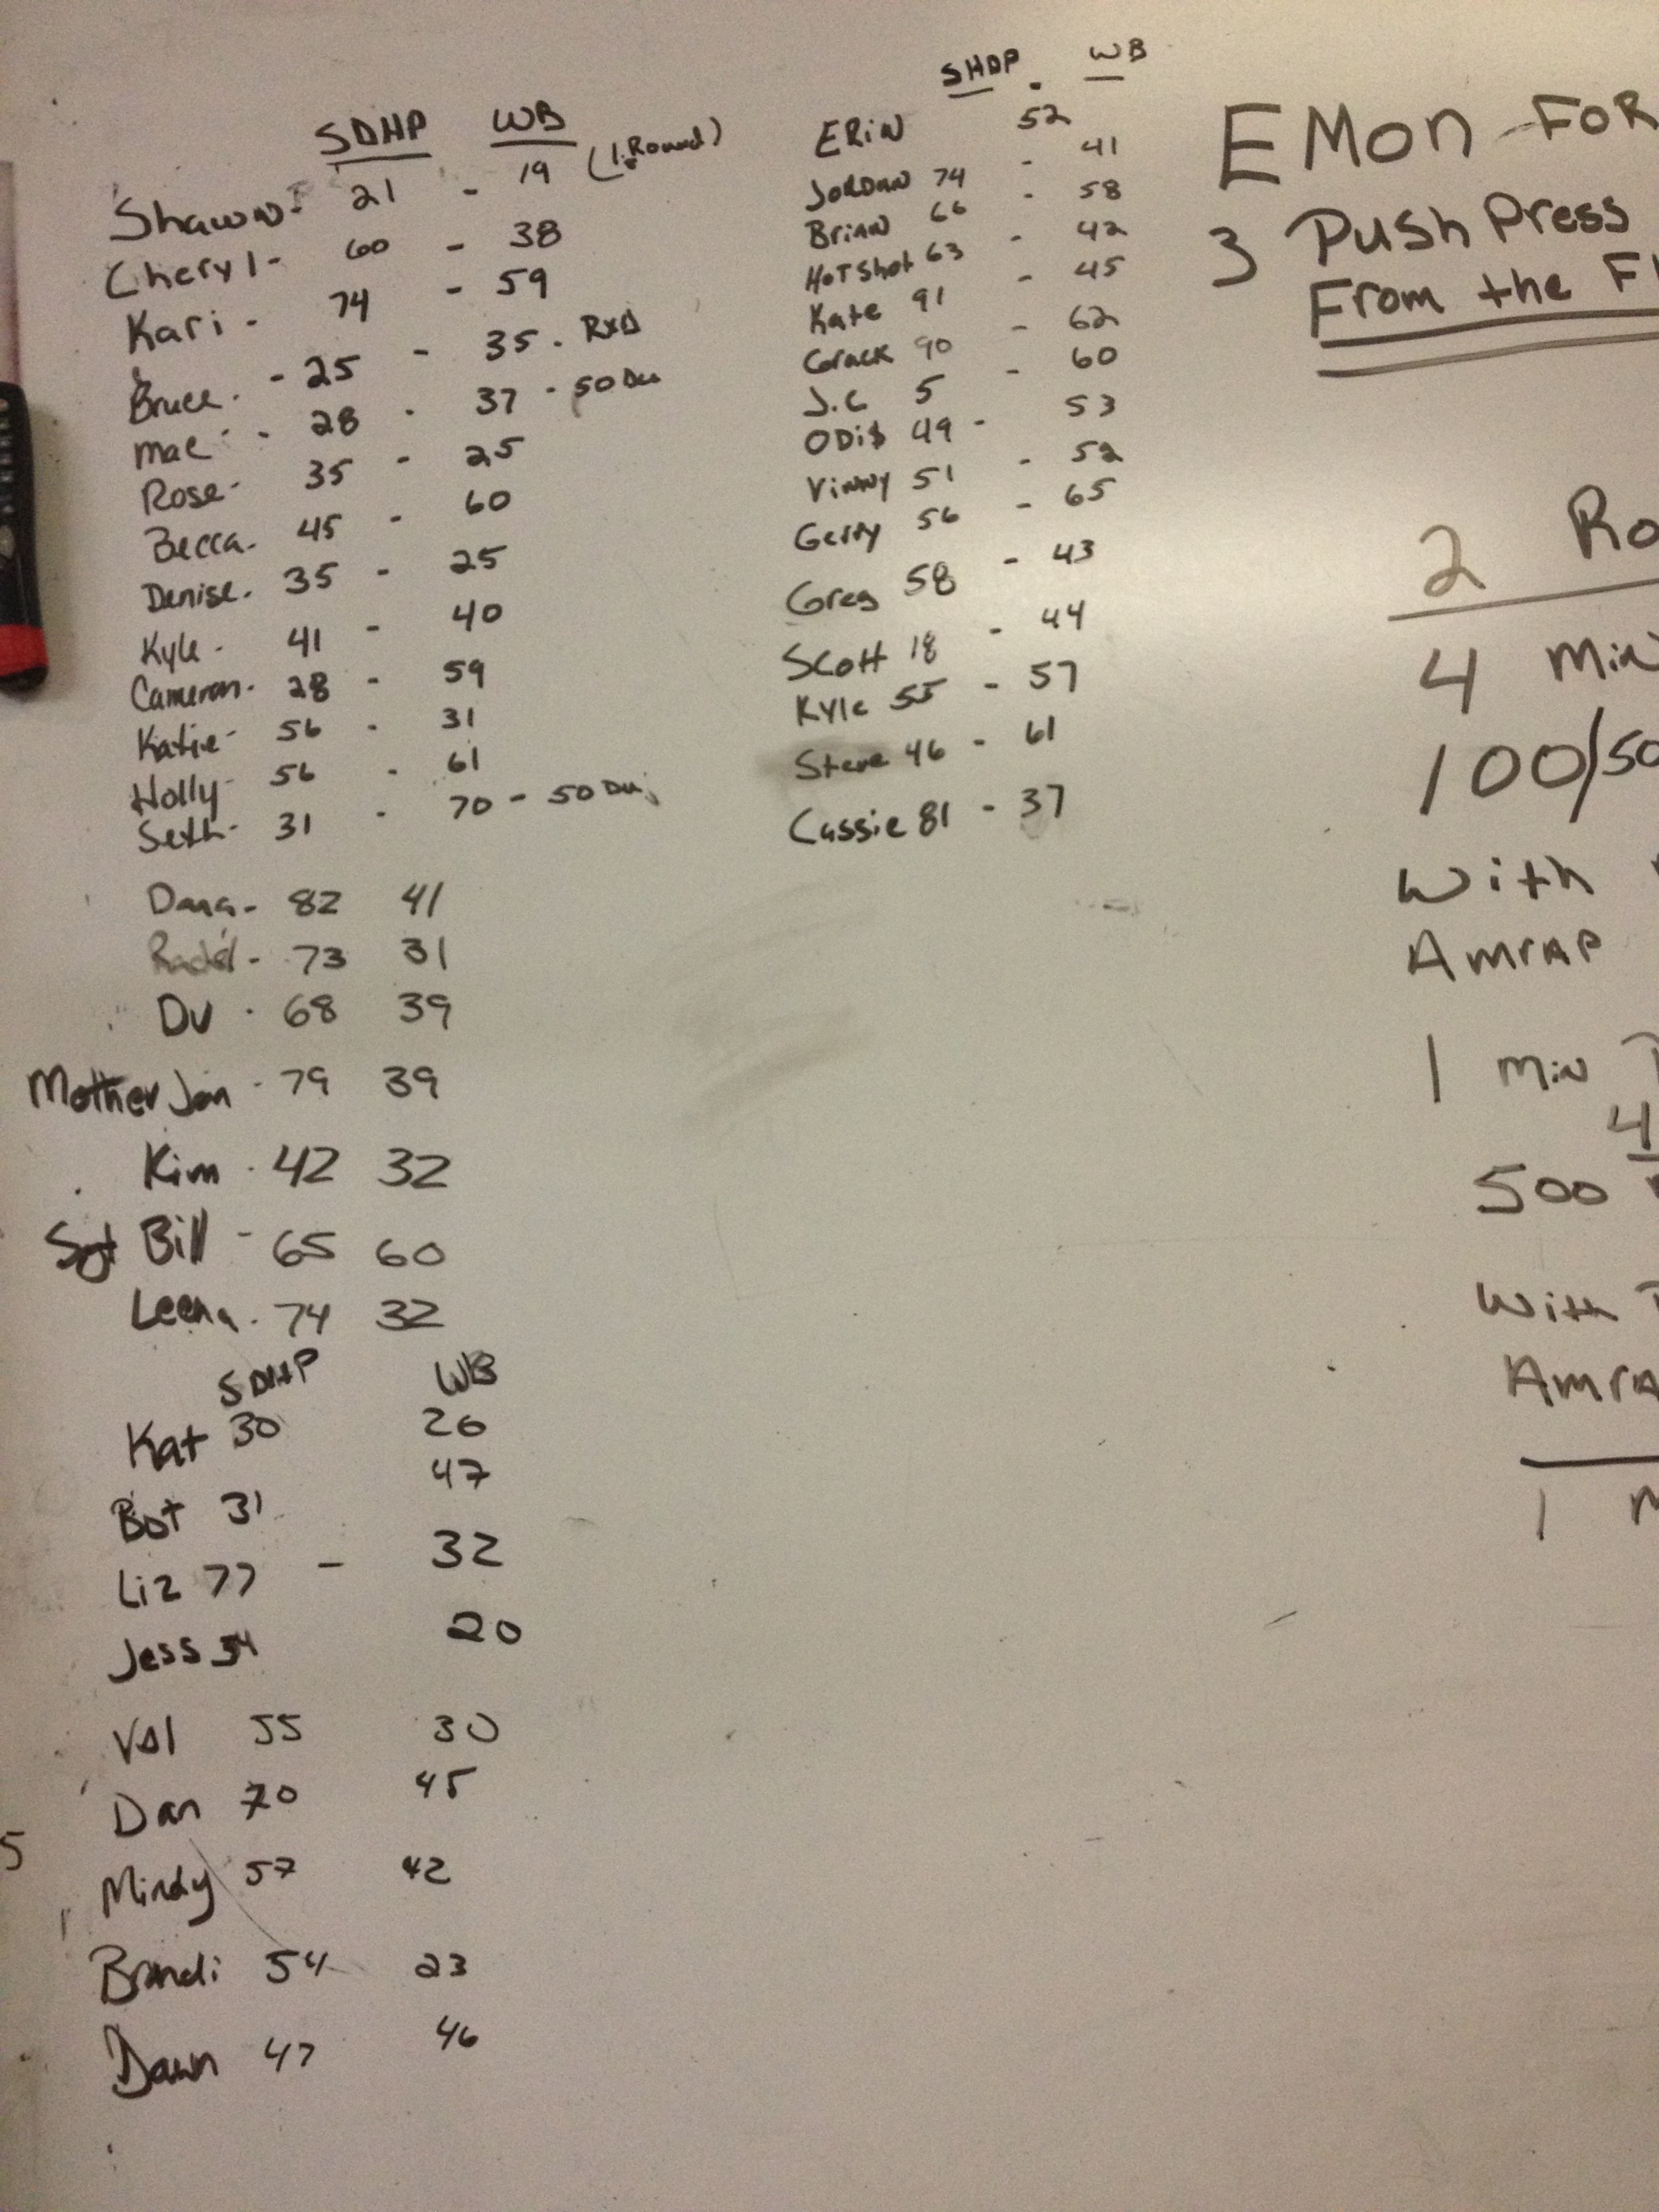 SDHP WB
Shawn - 21 - 19 (1 Round)
Cheryl - 60 - 38
Kari - 74 - 59
Bruce - 25 - 35 - RXD
Mae - 28 - 37 - 50 Du
Rose - 35 - 25
Becca - 45 - 60
Denise - 35 - 25
Kyle - 41 - 40
Cameron - 28 - 59
Katie - 56 - 31
Holly - 56 - 61
Seth - 31 - 70 - 50 Du
Dana - 82 41
73 31
DV - 68 39
Mother Jan - 79 39
Kim - 42 32
Sgt Bill - 65 60
Leena - 74 32
SDHP WB
Kat 30 26
Bot 31 47
Liz 77 - 32
Jess 34 20
Val 55 30
Dan 70 45
Mindy 57 42
Brandi 54 23
Dawn 47 46
5
SHDP WB
ERiN 52 - 41
JORDAN 74 - 58
Brian 66 - 42
HOTShot 63 - 45
Kate 91 - 62
90 - 60
J.C 5
ODiS 49 - 53
ViNNY 51 - 52
Gerry 56 - 65
Greg 58 - 43
Scott 18 - 44
Kyle 55 - 57
Steve 46 - 61
Cassie 81 - 37
EMon FOR
3 Push Press
From the Fl
2 Ro
4 Min
100/50
With
AmrAP
1 Min
4
500
With
AmrA
1 M